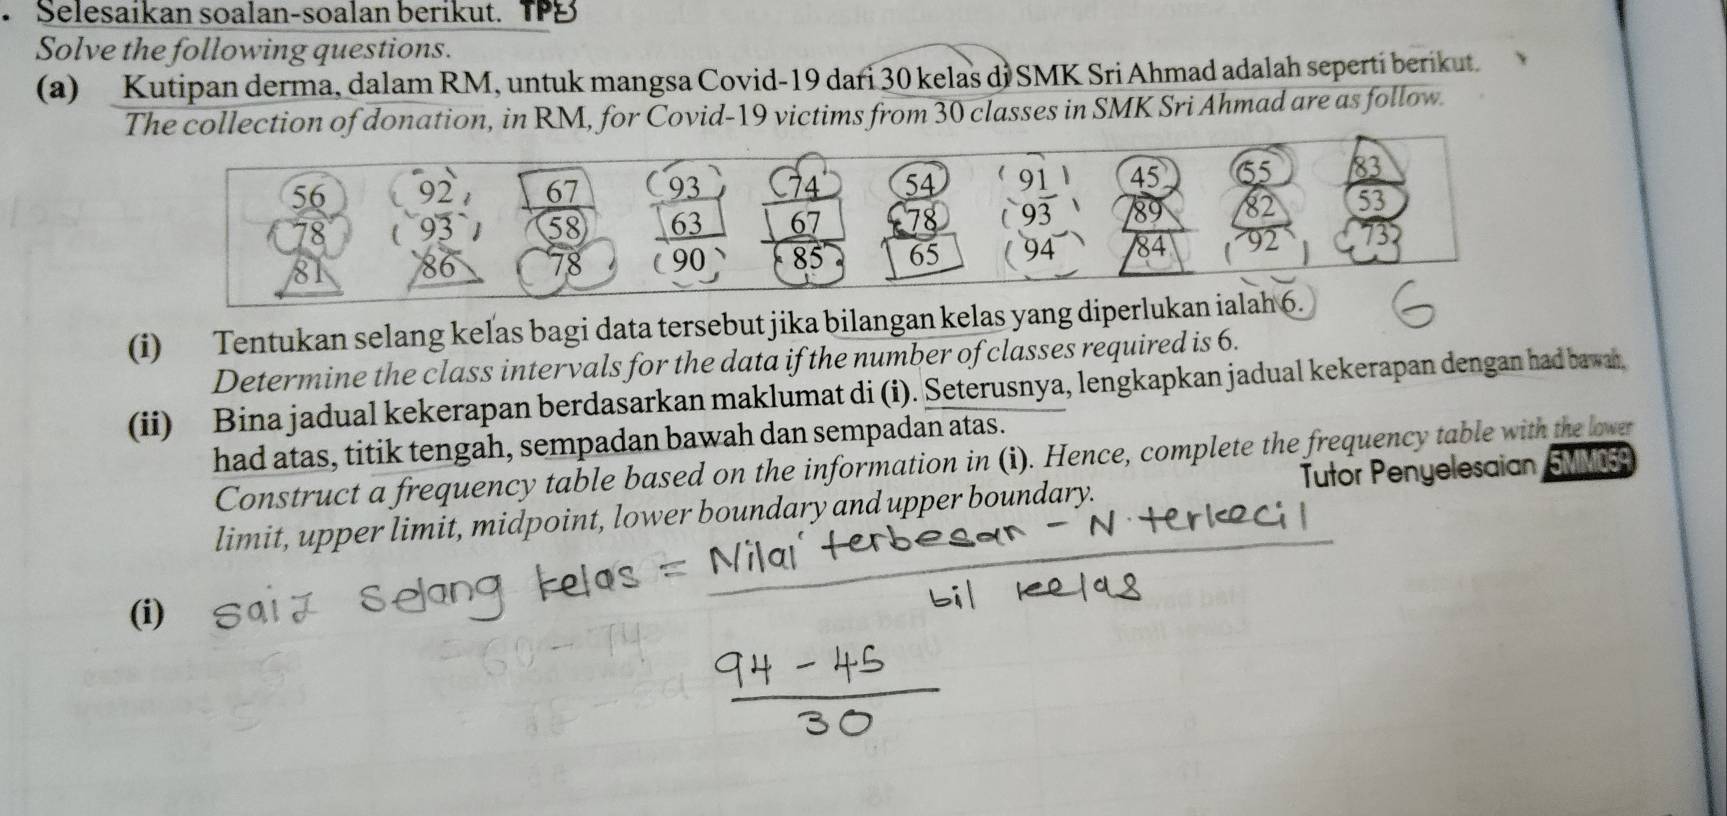 Selesaikan soalan-soalan berikut. TP3
Solve the following questions.
(a) Kutipan derma, dalam RM, untuk mangsa Covid-19 dari 30 kelas di SMK Sri Ahmad adalah seperti berikut.
The collection of donation, in RM, for Covid-19 victims from 30 classes in SMK Sri Ahmad are as follow.
56 92 67 93 74 54 91 45 55 83
78 93 58 63 67 78 93 89 82 53
81 86 78 90 85 65 94 84 92 73
(i) Tentukan selang kelas bagi data tersebut jika bilangan kelas yang diperlukan ialah 6. 6
Determine the class intervals for the data if the number of classes required is 6.
(ii) Bina jadual kekerapan berdasarkan maklumat di (i). Seterusnya, lengkapkan jadual kekerapan dengan had bawah,
had atas, titik tengah, sempadan bawah dan sempadan atas.
Construct a frequency table based on the information in (i). Hence, complete the frequency table with the lower
limit, upper limit, midpoint, lower boundary and upper boundary.
Tutor Penyelesaian 5MM059
(i) saiz selang kelas = Nilai terbesar - N. terkecil
bil kelas
94 - 45
30